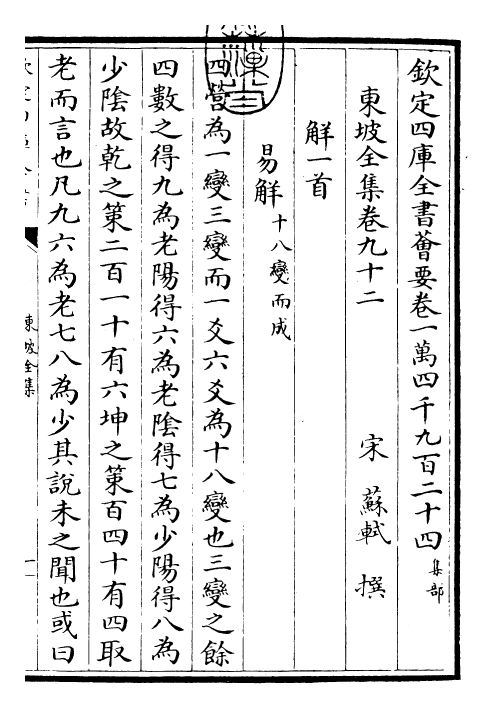 欽定四庫全書薈要卷一萬四千九百二十四 集部
東坡全集卷九十二
宋 蘇軾 撰
解一首
易解 十八變而成
四營為一變三變而一爻六爻為十八變也三變之餘
四數之得九為老陽得六為老陰得七為少陽得八為
少陰故乾之策二百一十有六坤之策百四十有四取
老而言也凡九六為老七八為少其說未之聞也或曰
東坡全集
一